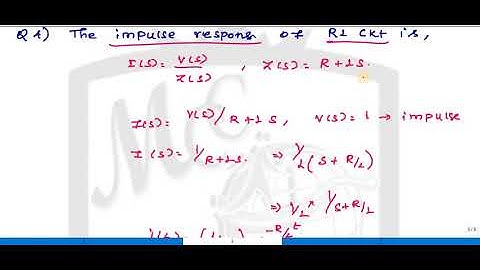 Q 4) The impulse respons of RL ckt is,
I(s) = V(s)/Z(s) , Z(s) = R + LS.
I(s) = V(s)/R+LS , V(s) = 1 → impulse
I(s) = 1/R+LS. ⇒ 1/L(S + R/L)
⇒ 1/L * 1/S+R/L